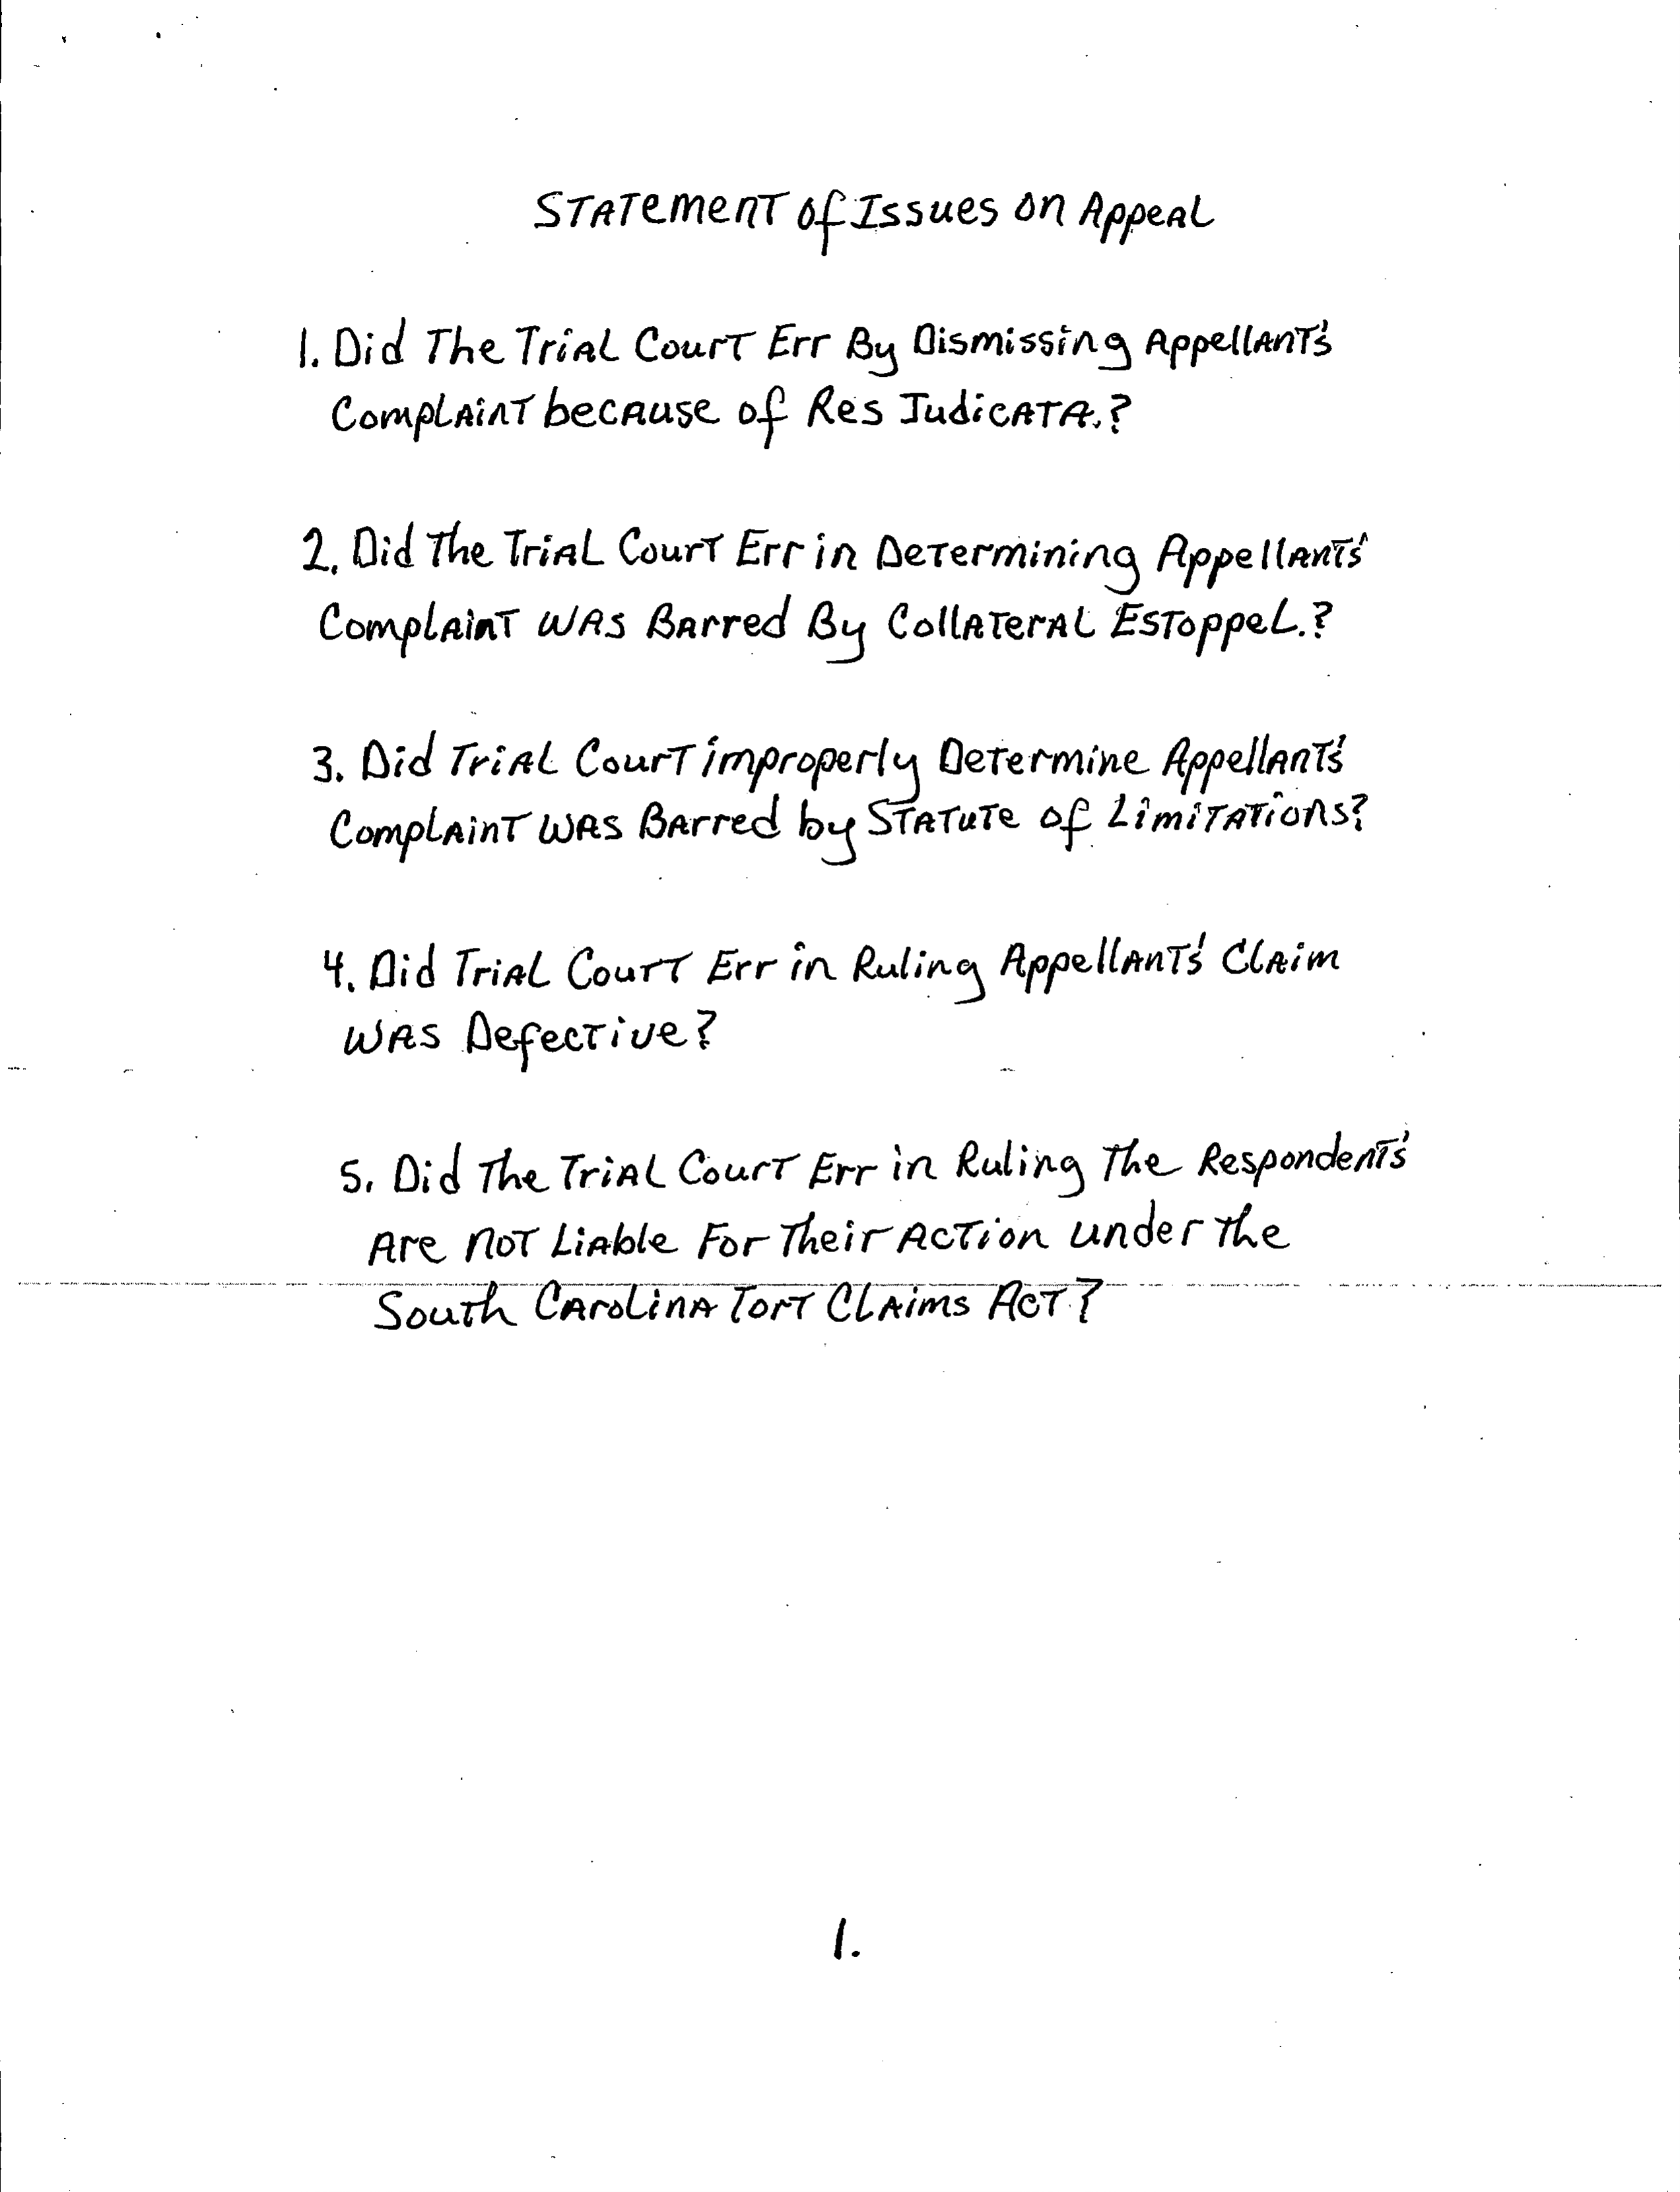 Statement of Issues on Appeal
1. Did The Trial Court Err By Dismissing Appellant's
Complaint because of Res Judicata.?
2. Did The Trial Court Err in Determining Appellant's
Complaint was Barred By Collateral Estoppel.?
3. Did Trial Court improperly Determine Appellant's
Complaint was Barred by Statute of Limitations?
4. Did Trial Court Err in Ruling Appellant's Claim
was Defective?
5. Did The Trial Court Err in Ruling The Respondent's
Are not Liable For Their Action under the
South Carolina Tort Claims Act?
1.